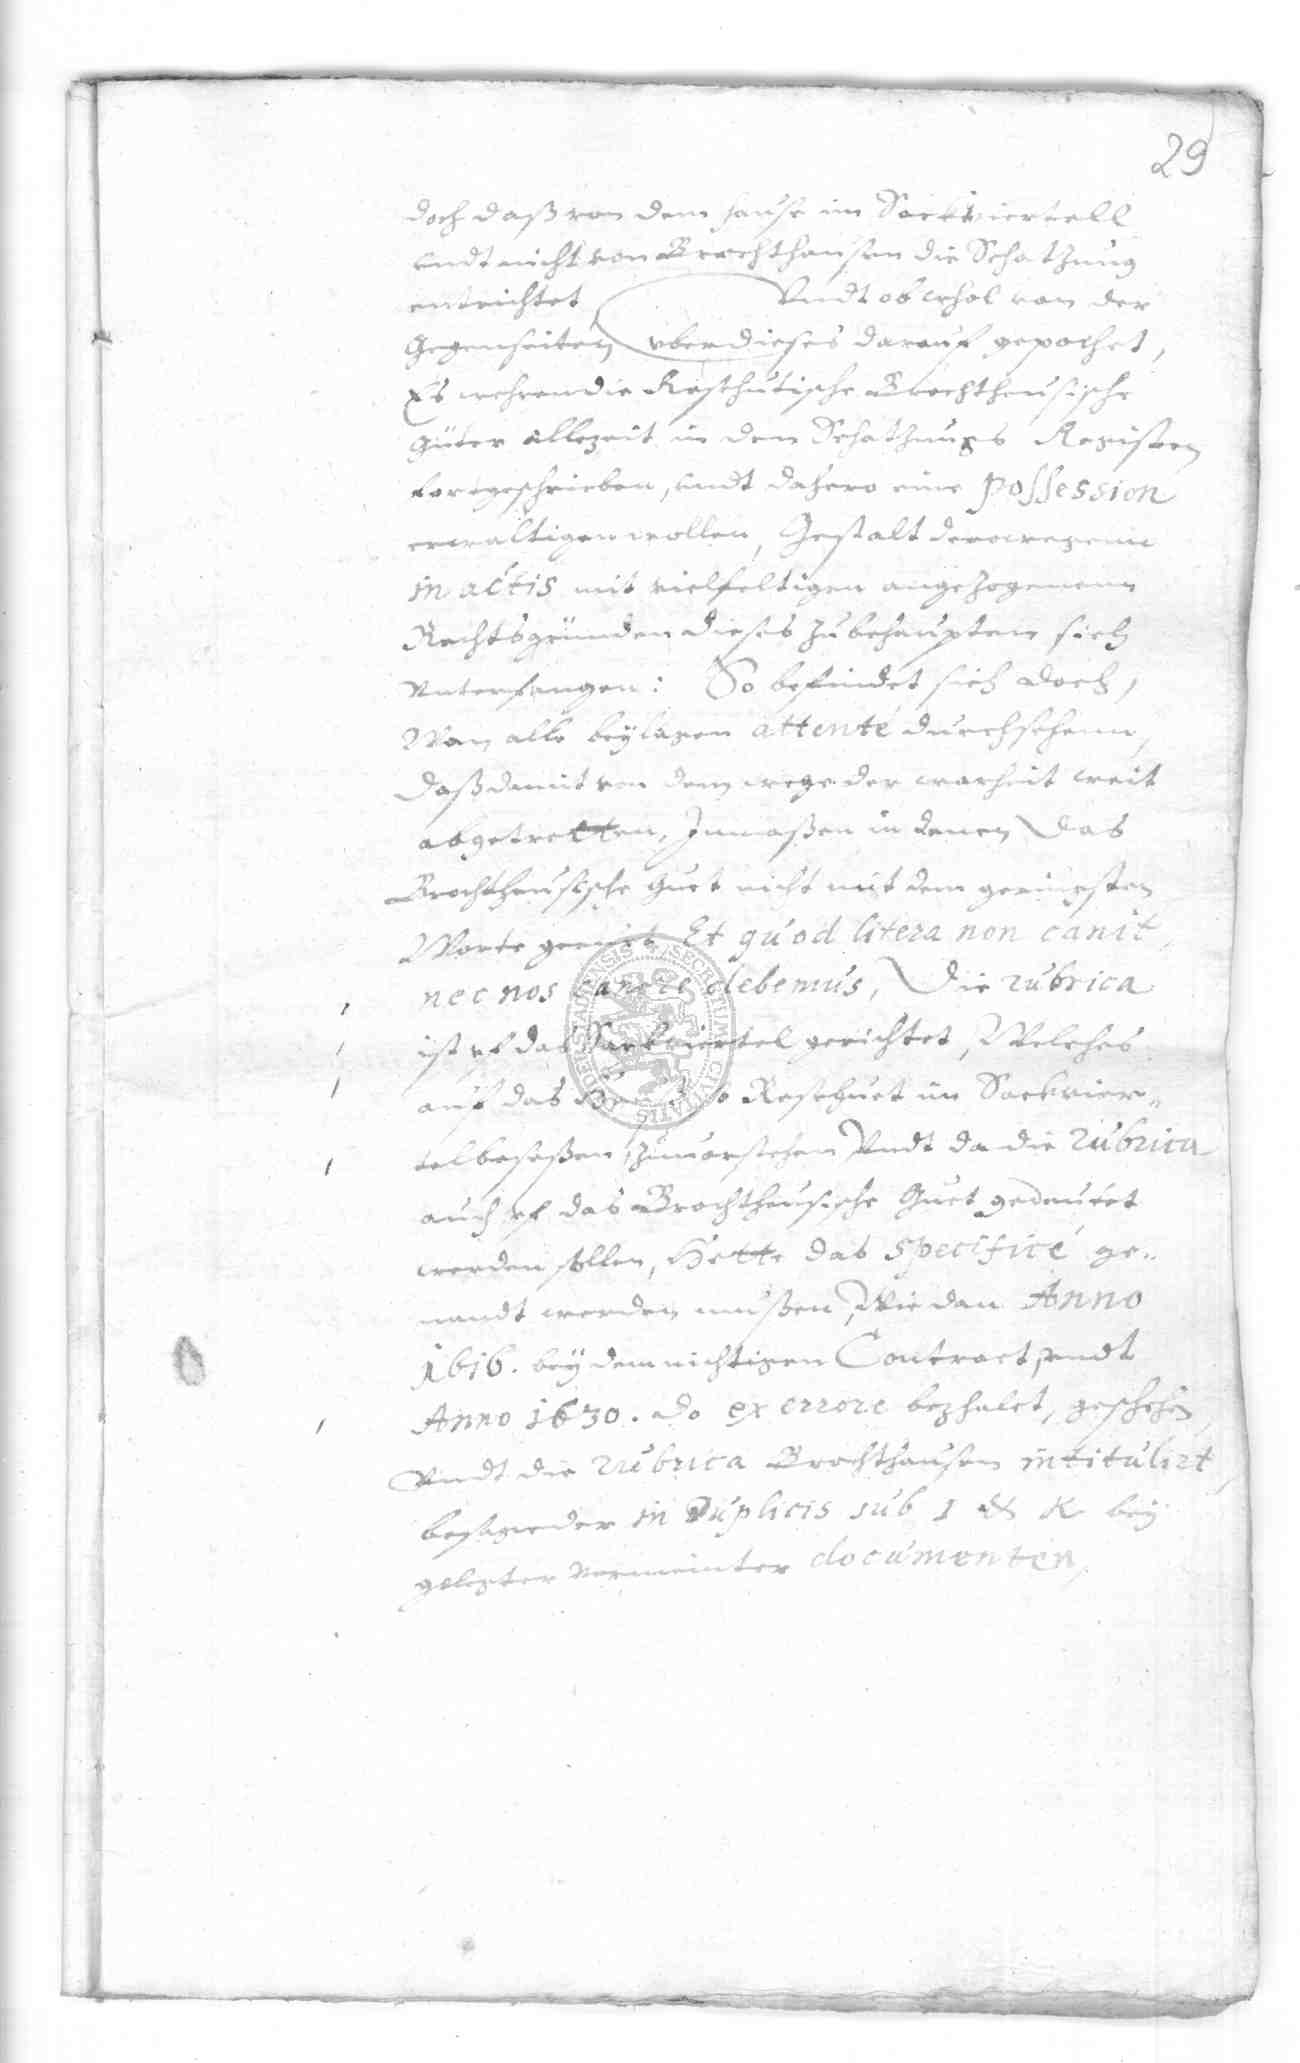 29
doch daß von dem hause im Sackviertell
undt nicht von Brochthausen die Schatzung
entrichtet Undt obwhol von der
Gegenseiten uber dieses darauf gepochet,
Es wehren die Reschutische Brochtheusische
Güter allezeit in dem Schatzungs Register
fortgeschrieben, undt dahero eine possession
erwaltigen wollen, Gestalt deroweg
in actis mit vielfeltigen angezogenenn
Rechtsgründen dieses zu behaupten sich
unterfangen: So befindet sich doch,
Wan alle beylagen attenté durchsehenn,
daß damit von dem wege der warheit weit
abgetretten, Inmaßen in denen das
Brochtheusische Guet nicht mit dem geringsten
Worte Et quod litera non canit,
nec nos canere debemus, Die rubrica
ist uf das Sackviertel gerichtet, Welches
auf das so Reschuet im Sackvier„
tel beseßen, zuuerstehen Undt da die rubrica
auch uf das Brochtheusische Guet gedeutet
werden sollen, Hette das specificé ge„
nandt werden mußen, Wie dan Anno
1616. bey dem nichtigen Contract, undt
Anno 1630. do ex errore bezhalet, geschehen,
Undt die rubrica Brochthausen intitulirt,
besage der in Duplicis sub I & K bey
gelegter vermeinter documenten,
SECRETUM CIVITATIS